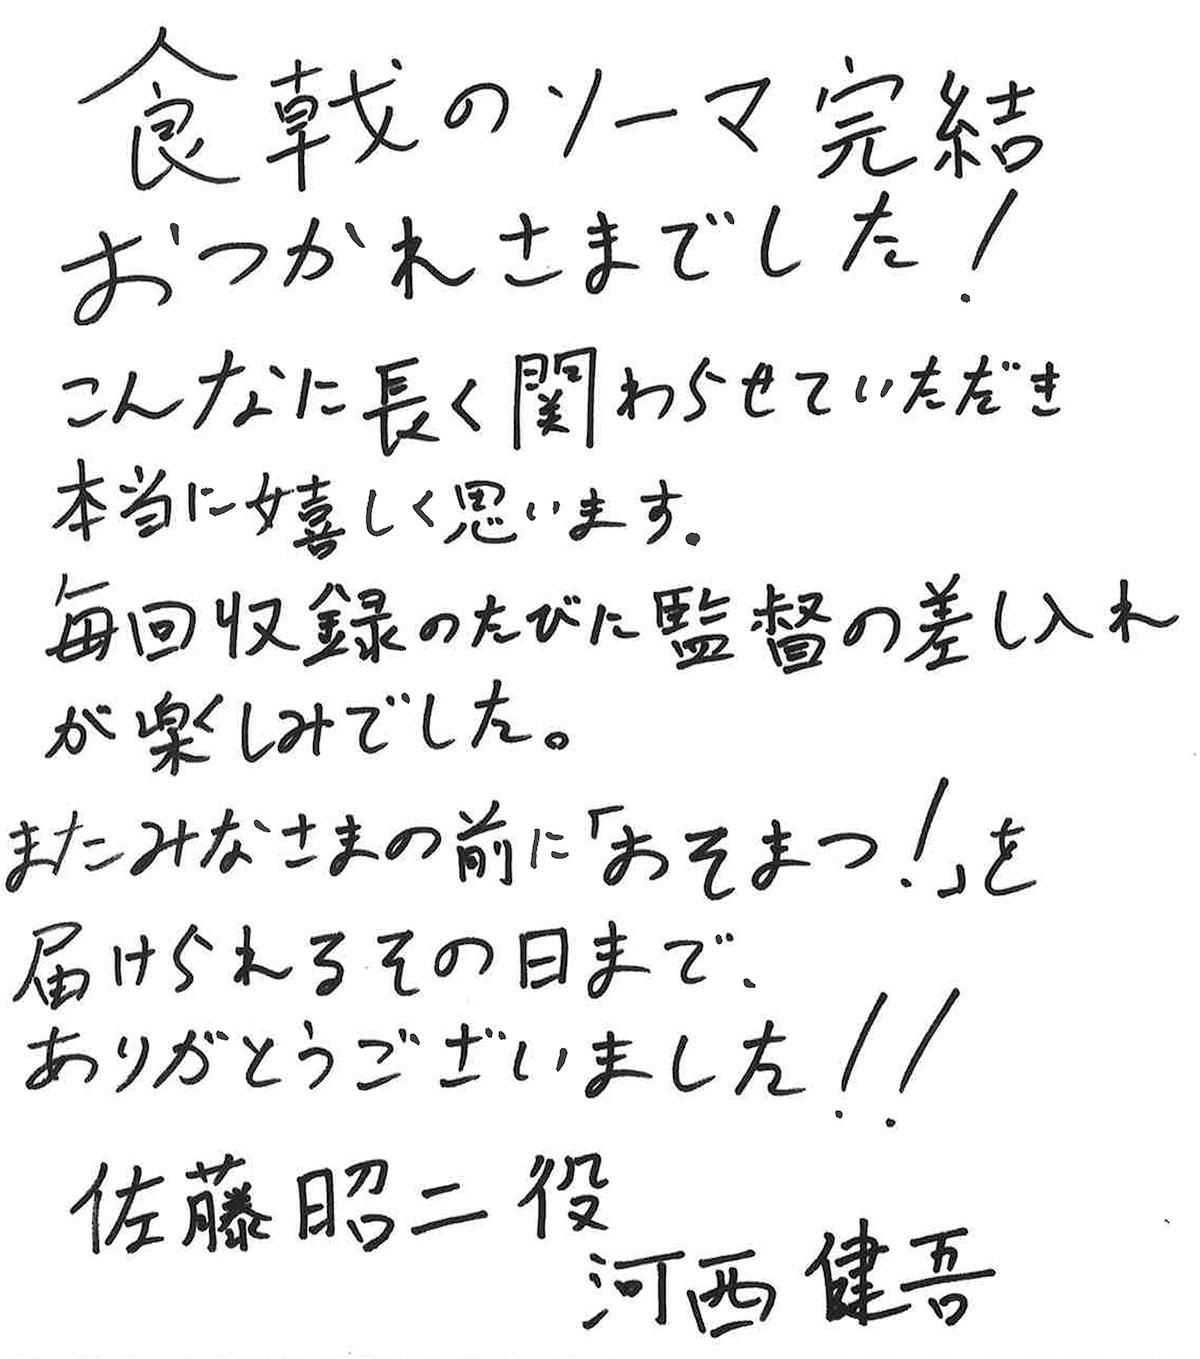 食戟のソーマ 完結
おつかれさまでした!
こんなに長く関わらせていただき
本当に嬉しく思います.
毎回収録のたびに監督の差し入れ
が楽しみでした。
またみなさまの前に「おそまつ!」を
届けられるその日まで、
ありがとうございました!!
佐藤昭二 役
河西健吾